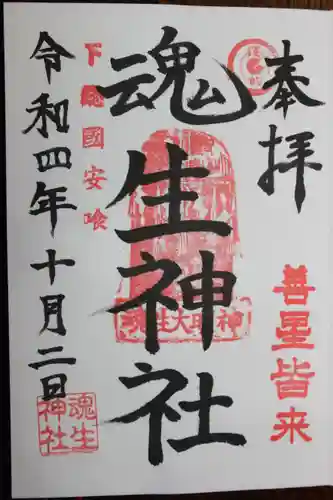 奉拝
善星皆来
魂生神社
下総國安喰
令和四年十月二日
魂生大明神
魂生
神社